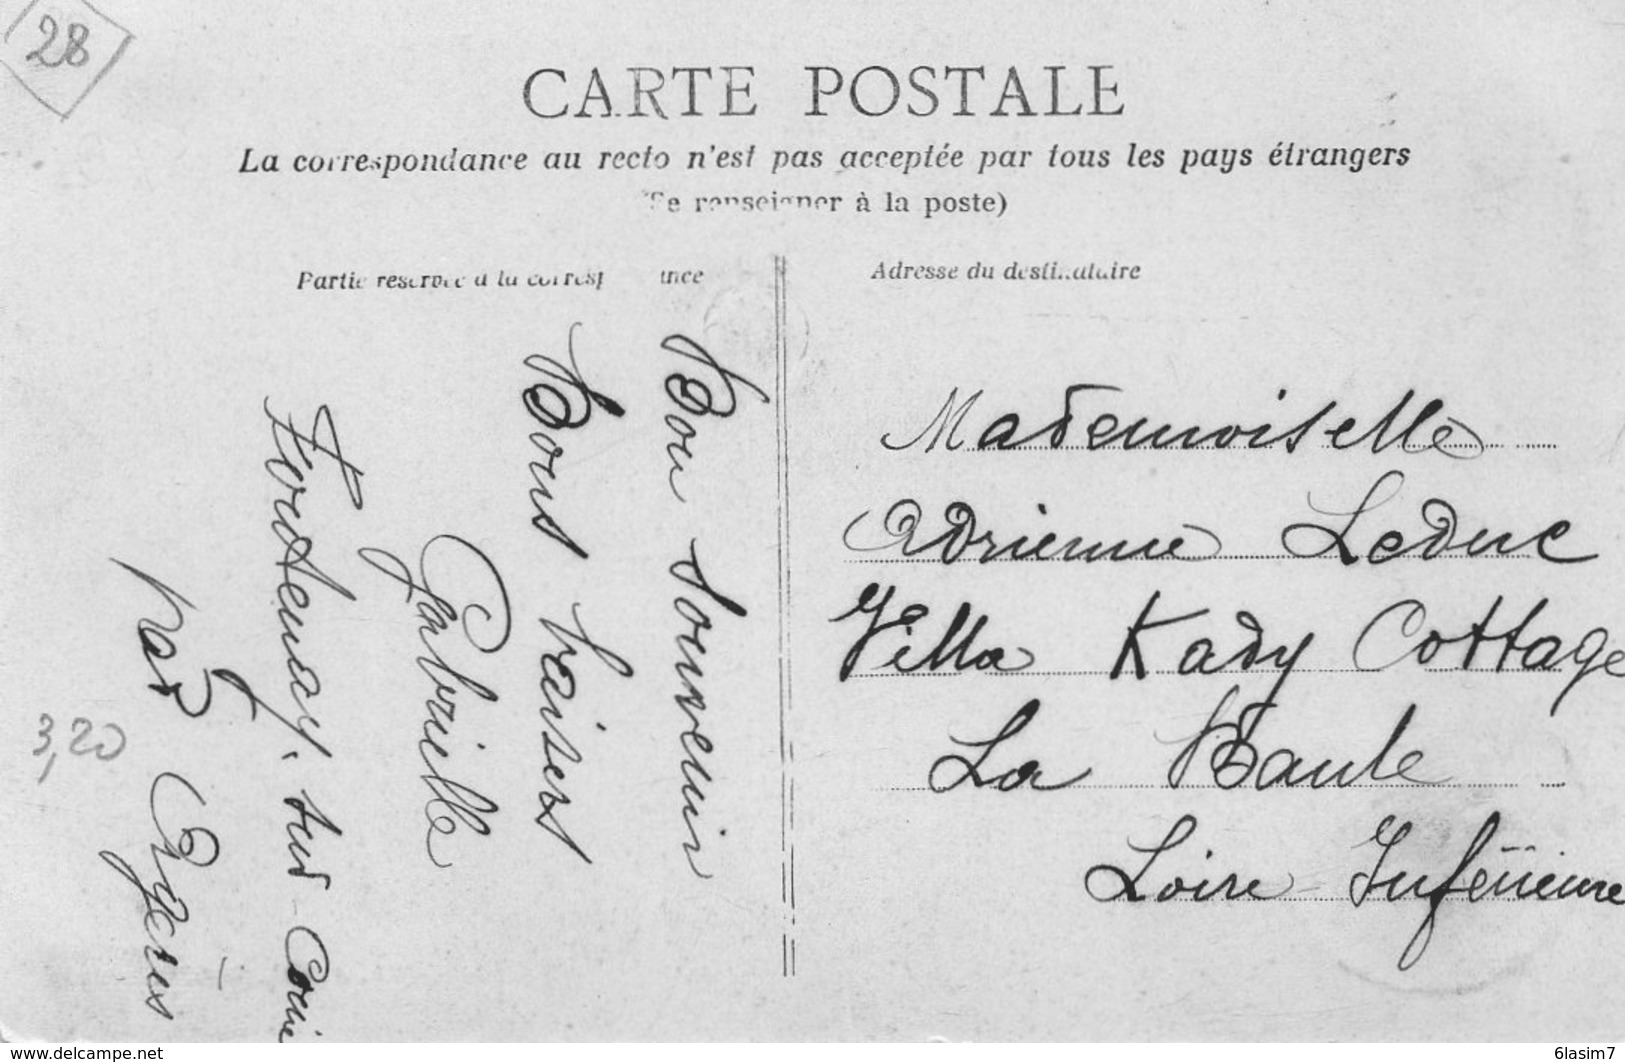 28
CARTE POSTALE
La correspondance au recto n'est pas acceptée par tous les pays étrangers
(Se renseigner à la poste)
Partie réservée à la correspondance
Adresse du destinataire
Bon souvenir
Bons baisers
Gabrielle
sur-Conie
par Orgères
3,20
Mademoiselle
Adrienne Leduc
Villa Kady Cottage
La Baule
Loire-Inférieure
www.delcampe.net
6lasim7